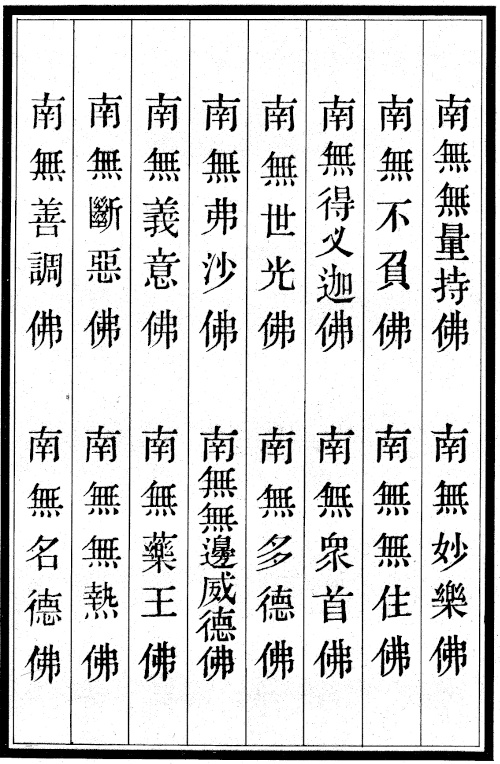 南無無量持佛 南無妙樂佛
南無不負佛 南無無住佛
南無得叉迦佛 南無衆首佛
南無世光佛 南無多德佛
南無弗沙佛 南無無邊威德佛
南無義意佛 南無藥王佛
南無斷惡佛 南無無熱佛
南無善調佛 南無名德佛